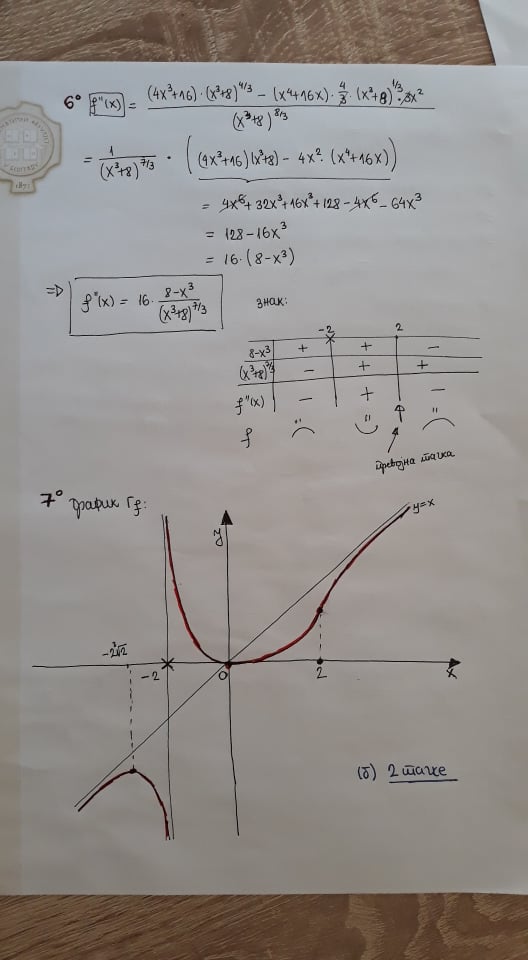 6° f''(x) = ((4x³+16)·(x³+8)^{4/3} − (x⁴+16x)·4/3·(x³+8)^{1/3}·3x²) / (x³+8)^{8/3}
= 1/(x³+8)^{7/3} · ((4x³+16)(x³+8) − 4x²·(x⁴+16x))
= 4x⁶ + 32x³ + 16x³ + 128 − 4x⁶ − 64x³
= 128 − 16x³
= 16·(8−x³)
⇒ f''(x) = 16· (8−x³)/(x³+8)^{7/3}
знак:
-2 2
8−x³ + + −
(x³+8)^{7/3} − + +
f''(x) − + −
f
превојна тачка
7° график Γf:
y=x
y
-2∛2
-2 0 2 x
(б) 2 тачке
1873